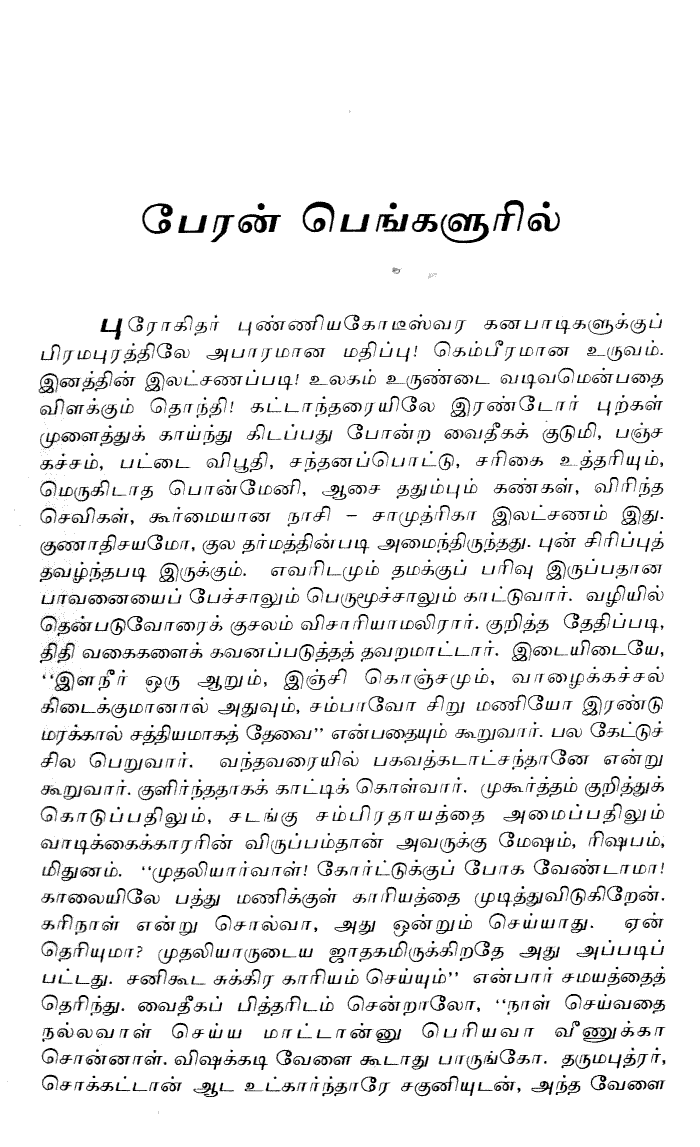 பேரன் பெங்களூரில்
புரோகிதர் புண்ணியகோடீஸ்வர கனபாடிகளுக்குப்
பிரமபுரத்திலே அபாரமான மதிப்பு! கெம்பீரமான உருவம்.
இனத்தின் இலட்சணப்படி! உலகம் உருண்டை வடிவமென்பதை
விளக்கும் தொந்தி! கட்டாந்தரையிலே இரண்டோர் புற்கள்
முளைத்துக் காய்ந்து கிடப்பது போன்ற வைதீகக் குடுமி, பஞ்ச
கச்சம், பட்டை விபூதி, சந்தனப்பொட்டு, சரிகை உத்தரியும்,
மெருகிடாத பொன்மேனி, ஆசை ததும்பும் கண்கள், விரிந்த
செவிகள், கூர்மையான நாசி – சாமுத்ரிகா இலட்சணம் இது.
குணாதிசயமோ, குல தர்மத்தின்படி அமைந்திருந்தது. புன் சிரிப்புத்
தவழ்ந்தபடி இருக்கும். எவரிடமும் தமக்குப் பரிவு இருப்பதான
பாவனையைப் பேச்சாலும் பெருமூச்சாலும் காட்டுவார். வழியில்
தென்படுவோரைக் குசலம் விசாரியாமலிரார். குறித்த தேதிப்படி,
திதி வகைகளைக் கவனப்படுத்தத் தவறமாட்டார். இடையிடையே,
“இளநீர் ஒரு ஆறும், இஞ்சி கொஞ்சமும், வாழைக்கச்சல்
கிடைக்குமானால் அதுவும், சம்பாவோ சிறு மணியோ இரண்டு
மரக்கால் சத்தியமாகத் தேவை” என்பதையும் கூறுவார். பல கேட்டுச்
சில பெறுவார். வந்தவரையில் பகவத்கடாட்சந்தானே என்று
கூறுவார். குளிர்ந்ததாகக் காட்டிக் கொள்வார். முகூர்த்தம் குறித்துக்
கொடுப்பதிலும், சடங்கு சம்பிரதாயத்தை அமைப்பதிலும்
வாடிக்கைக்காரரின் விருப்பம்தான் அவருக்கு மேஷம், ரிஷபம்,
மிதுனம். “முதலியார்வாள்! கோர்ட்டுக்குப் போக வேண்டாமா!
காலையிலே பத்து மணிக்குள் காரியத்தை முடித்துவிடுகிறேன்.
கரிநாள் என்று சொல்வா, அது ஒன்றும் செய்யாது. ஏன்
தெரியுமா? முதலியாருடைய ஜாதகமிருக்கிறதே அது அப்படிப்
பட்டது. சனிகூட சுக்கிர காரியம் செய்யும்” என்பார் சமயத்தைத்
தெரிந்து. வைதீகப் பித்தரிடம் சென்றாலோ, “நாள் செய்வதை
நல்லவாள் செய்ய மாட்டான்னு பெரியவா வீணுக்கா
சொன்னாள். விஷக்கடி வேளை கூடாது பாருங்கோ. தருமபுத்ரர்,
சொக்கட்டான் ஆட உட்கார்ந்தாரே சகுனியுடன், அந்த வேளை